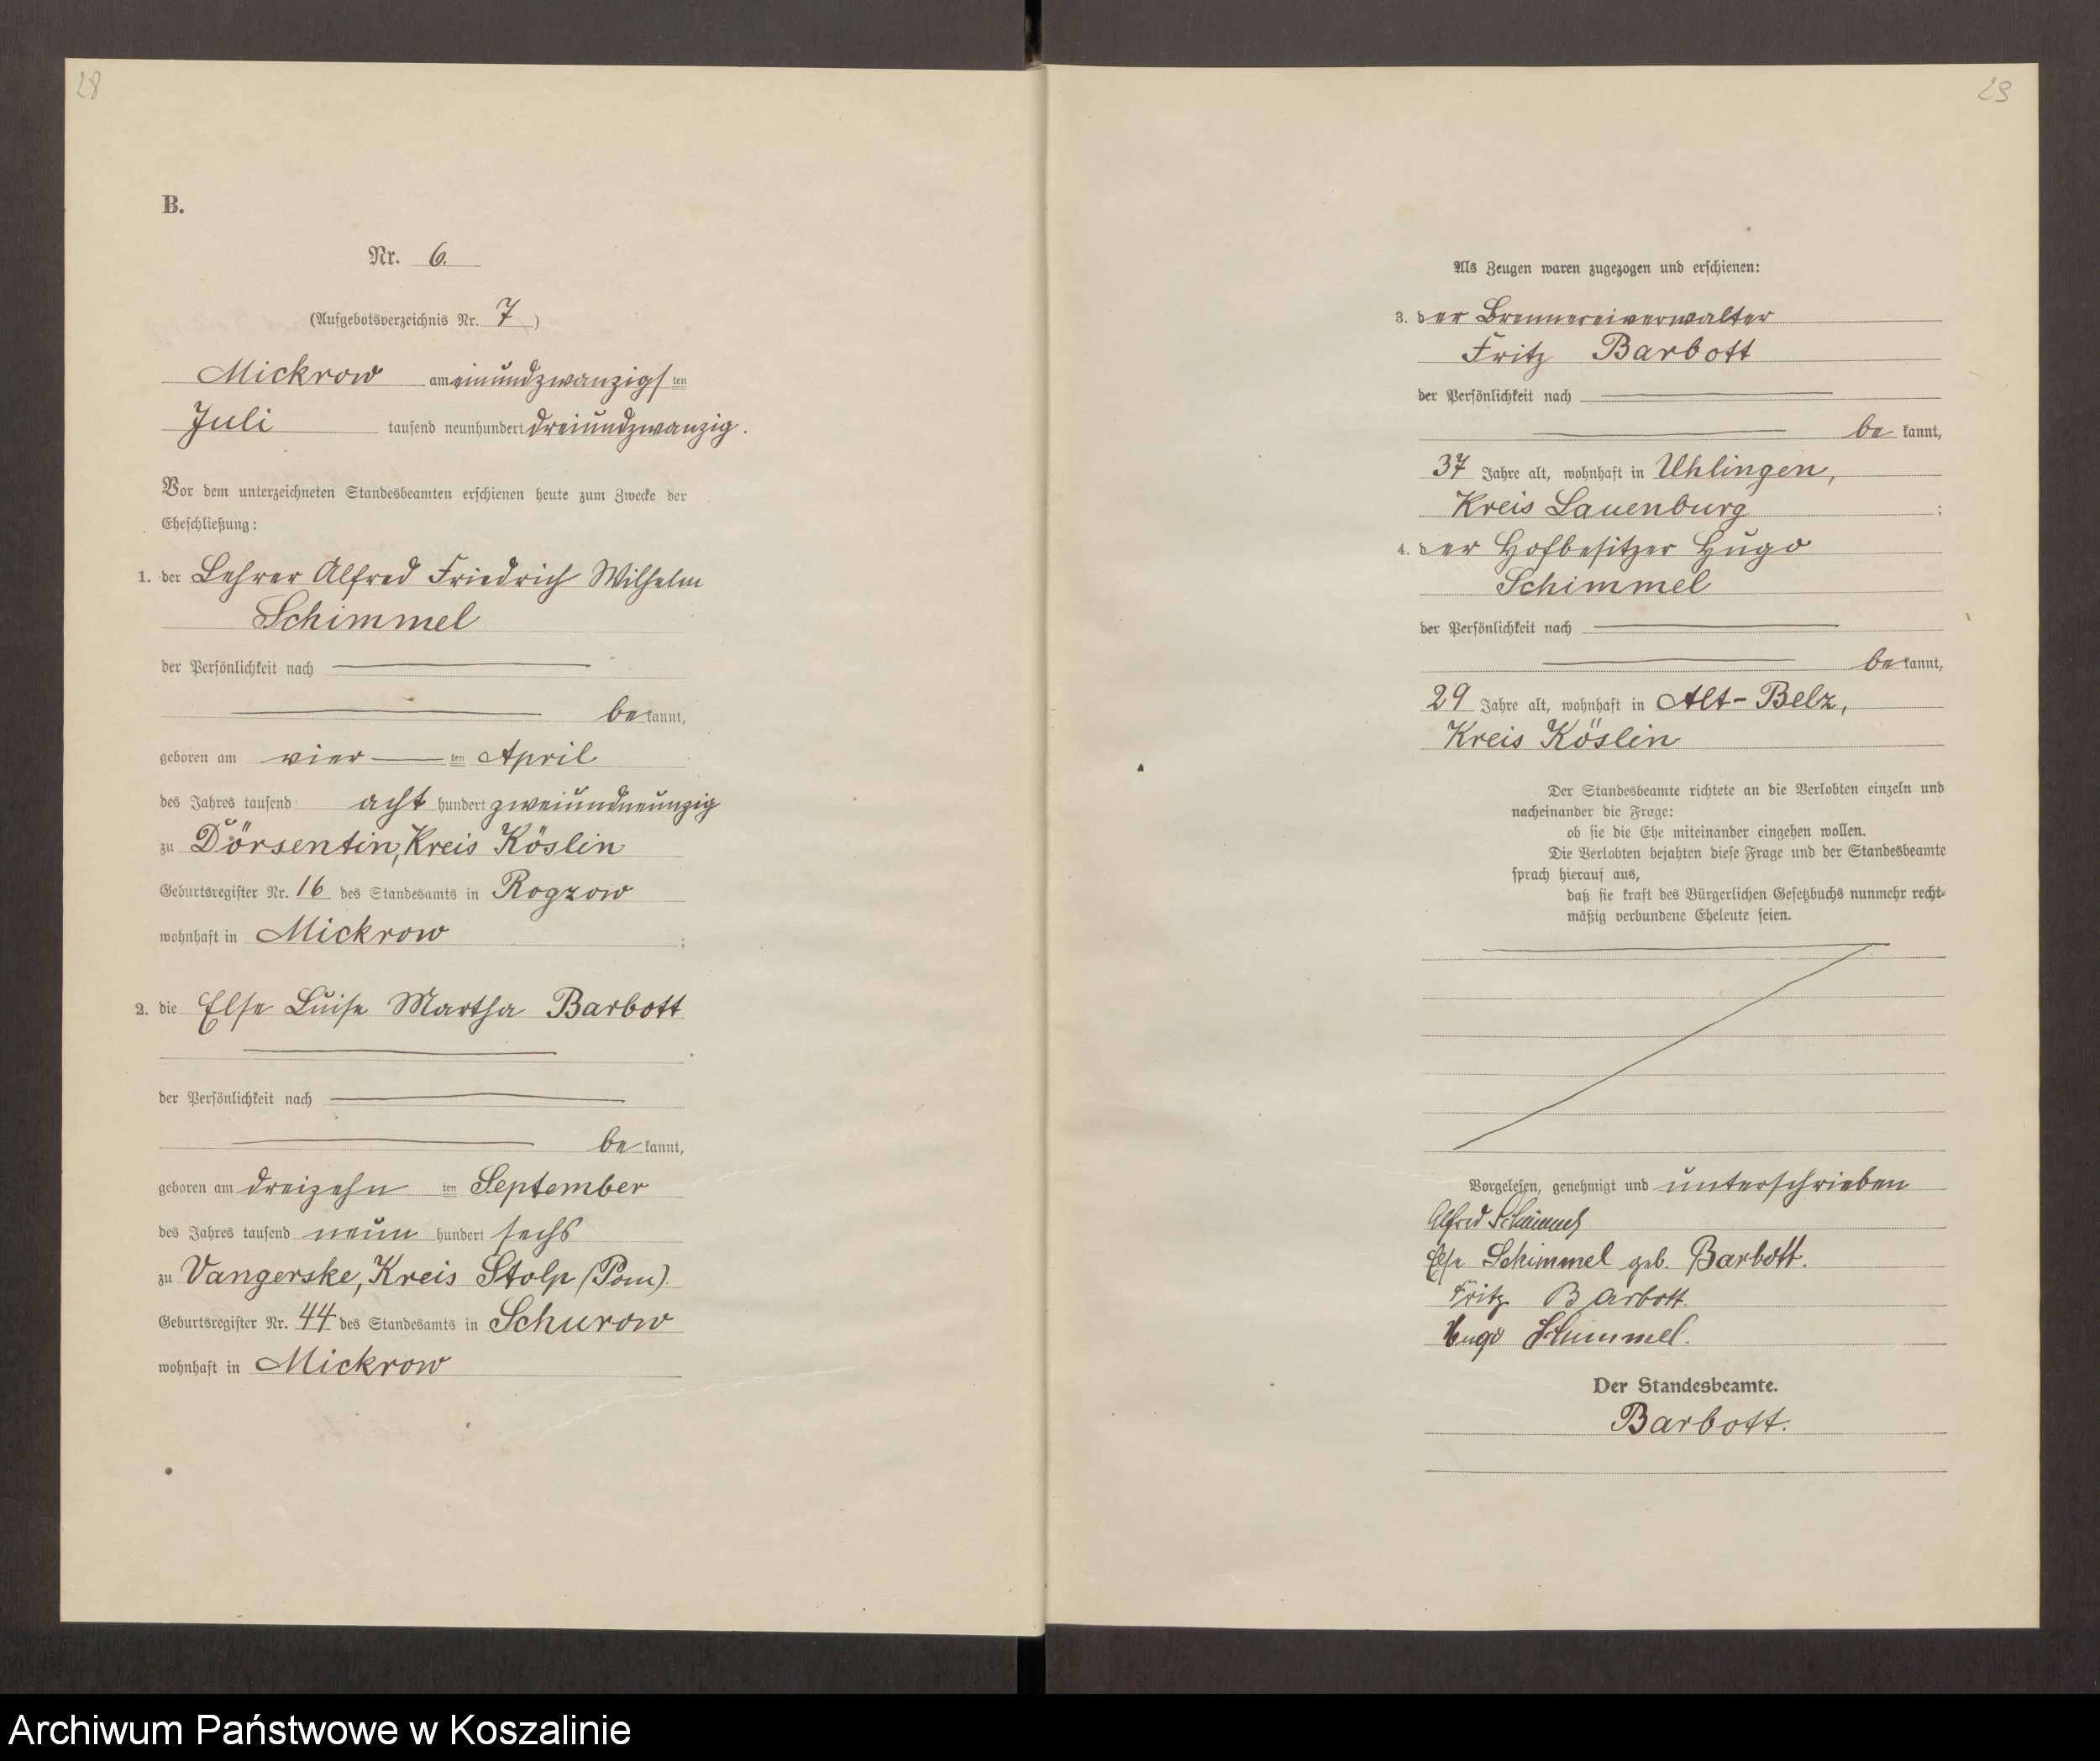 28
B.
Nr. 6.
(Aufgebotsverzeichnis Nr. 7)
Mickrow am einundzwanzigsten
Juli tausend neunhundert dreiundzwanzig.
Vor dem unterzeichneten Standesbeamten erschienen heute zum Zwecke der
Eheschließung:
1. der Lehrer Alfred Friedrich Wilhelm
Schimmel
der Persönlichkeit nach
bekannt,
geboren am vier ten April
des Jahres tausend acht hundert zweiundneunzig
zu Dörsentin, Kreis Köslin
Geburtsregister Nr. 16 des Standesamts in Rogzow
wohnhaft in Mickrow ;
2. die Else Luise Martha Barbott
der Persönlichkeit nach
bekannt,
geboren am dreizehn ten September
des Jahres tausend neun hundert sechs
zu Vangerske, Kreis Stolp (Pom)
Geburtsregister Nr. 44 des Standesamts in Schurow
wohnhaft in Mickrow
29
Als Zeugen waren zugezogen und erschienen:
3. der Brennereiverwalter
Fritz Barbott
der Persönlichkeit nach
bekannt,
37 Jahre alt, wohnhaft in Uhlingen,
Kreis Lauenburg ;
4. der Hofbesitzer Hugo
Schimmel
der Persönlichkeit nach
bekannt,
29 Jahre alt, wohnhaft in Alt-Belz,
Kreis Köslin
Der Standesbeamte richtete an die Verlobten einzeln und
nacheinander die Frage:
ob sie die Ehe miteinander eingehen wollen.
Die Verlobten bejahten diese Frage und der Standesbeamte
sprach hierauf aus,
daß sie kraft des Bürgerlichen Gesetzbuchs nunmehr recht-
mäßig verbundene Eheleute seien.
Vorgelesen, genehmigt und unterschrieben
Alfred Schimmel
Else Schimmel geb. Barbott.
Fritz Barbott.
Hugo Schimmel.
Der Standesbeamte.
Barbott.
Archiwum Państwowe w Koszalinie